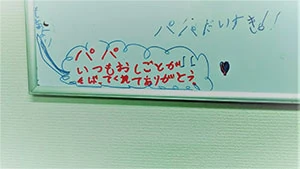 パパだいすき!!
パパ
いつもおしごとが
んばってくれてありがとう